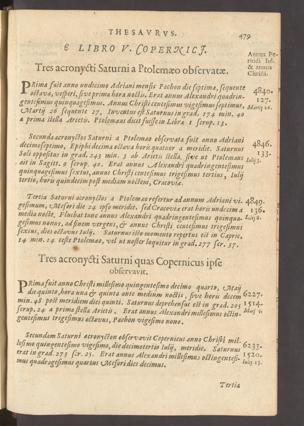 THESAVRVS. 479
E LIBRO V. COPERNICI.
Tres acronycti Saturni a Ptolemæo observatæ.
Prima fuit anno undecimo Adriani mensis Pachon die septima, sequente
octava, vesperi, sive prima hora noctis. Erat annus Alexandri quadrin-
gentesimus quinquagesimus. Annus Christi centesimus vigesimus septimus,
Martij 26 sequente 27, Inventus est Saturnus in grad. 174 min. 40
a prima stella Arietis. Ptolemæus dicit fuisse in Libra 1 scrup. 13.
4840.
127.
Secunda acronyctos Saturni a Ptolemæo observata fuit anno Adriani
decimoseptimo, Epiphi decima octava horis quatuor a meridie. Saturnus
Soli oppositus in grad. 243 min. 3 ab Arietis stella, sive ut Ptolemæi
est in Sagitt. 9 scrup. 40. Erat annus Alexandri quadringentesimus
quinquagesimus sextus, annus Christi centesimus trigesimus tertius, Iulij
tertio, horis quindecim post mediam noctem, Cracoviæ.
4846.
133.
Tertia Saturni acronyctos a Ptolemæo refertur ad annum Adriani vi-
gesimum, Mesori die 24 ipso meridie. sed Cracoviæ erat horis undecim a
media nocte. Fluebat tunc annus Alexandri quadringentesimus quinqua-
gesimus nonus, ad finem vergens, & annus Christi centesimus trigesimus
sextus, dies octavus Iulij. Saturnus illo momento repertus est in Capric.
14 min. 14 teste Ptolemæo, vel ut noster loquitur in grad. 277 scr. 37.
4849.
136.
Tres acronycti Saturni quas Copernicus ipse
observavit.
Prima fuit anno Christi millesimo quingentesimo decimo quarto, Maij
die quinto, hora una & quinta ante medium noctis, sive horis decem
min. 48 post meridiem diei quinti. Saturnus deprehensus est in grad. 205
scrup. 24 a prima stella Arietis. Erat annus Alexandri millesimus octin-
gentesimus trigesimus octavus, Pachon vigesimo nono.
6227.
1514.
Secundam Saturni acronycton observavit Copernicus anno Christi mil-
lesimo quingentesimo vigesimo, die decimotertio Iulij, meridie. Saturnus
erat in grad. 273 scr. 25. Erat annus Alexandri millesimus octingentesi-
mus quadragesimus quartus Mesori dies decimus.
6233.
1520.
Tertia